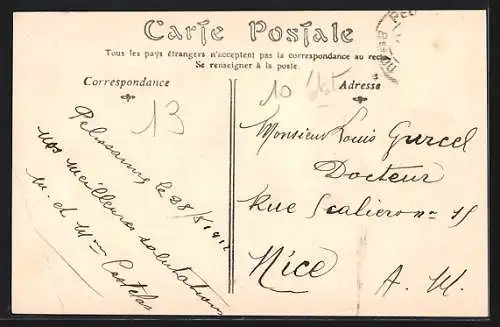 Carte Postale
Tous les pays étrangers n'acceptent pas la correspondance au recto
Se renseigner à la poste.
Correspondance
Adresse
13
10
Pelissanne le 28/8 1912
nos meilleures salutations
M. et Mme Castelas
Monsieur Louis Gurcel
Docteur
Rue Scaliero no 15
Nice
A. M.